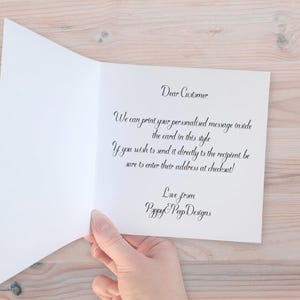 Dear Customer
We can print your personalised message inside
the card in this style
If you wish to send it directly to the recipient, be
sure to enter their address at checkout!
Love from
Poppy&PopDesigns